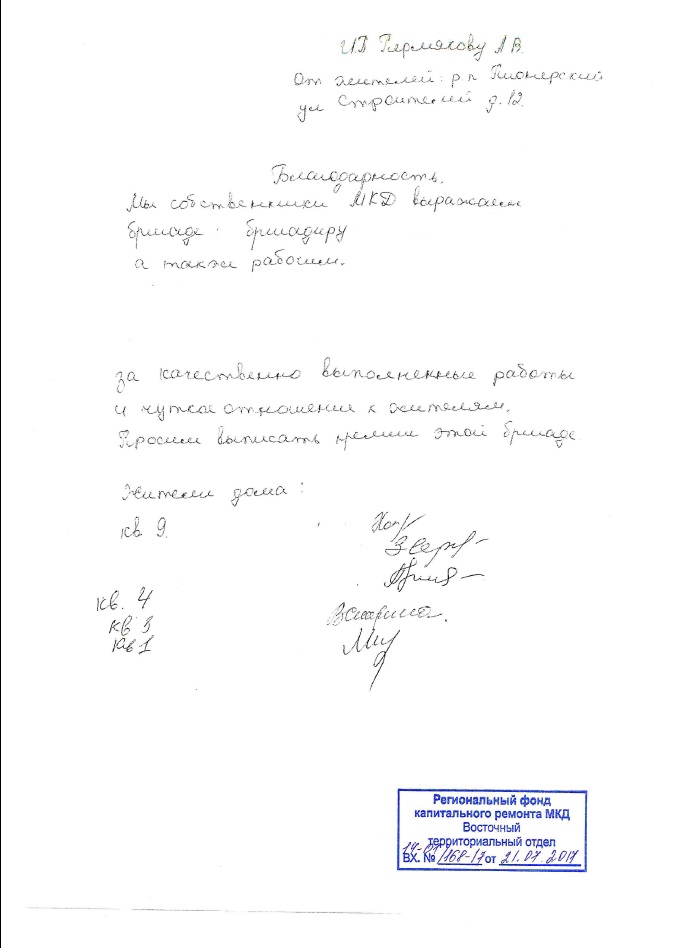 ИП Пермякову А В.
От жителей: р п Пионерский
ул Строителей д. 12.
Благодарность.
Мы собственники МКД выражаем
бригаде: бригадиру
а также рабочим.
за качественно выполненные работы
и чуткое отношение к жителям.
Просим выписать премии этой бригаде
Жители дома:
кв 9.
кв. 4
кв 3
кв 1
Региональный фонд
капитального ремонта МКД
Восточный
территориальный отдел
ВХ. № /168-17 от 21.07.2017